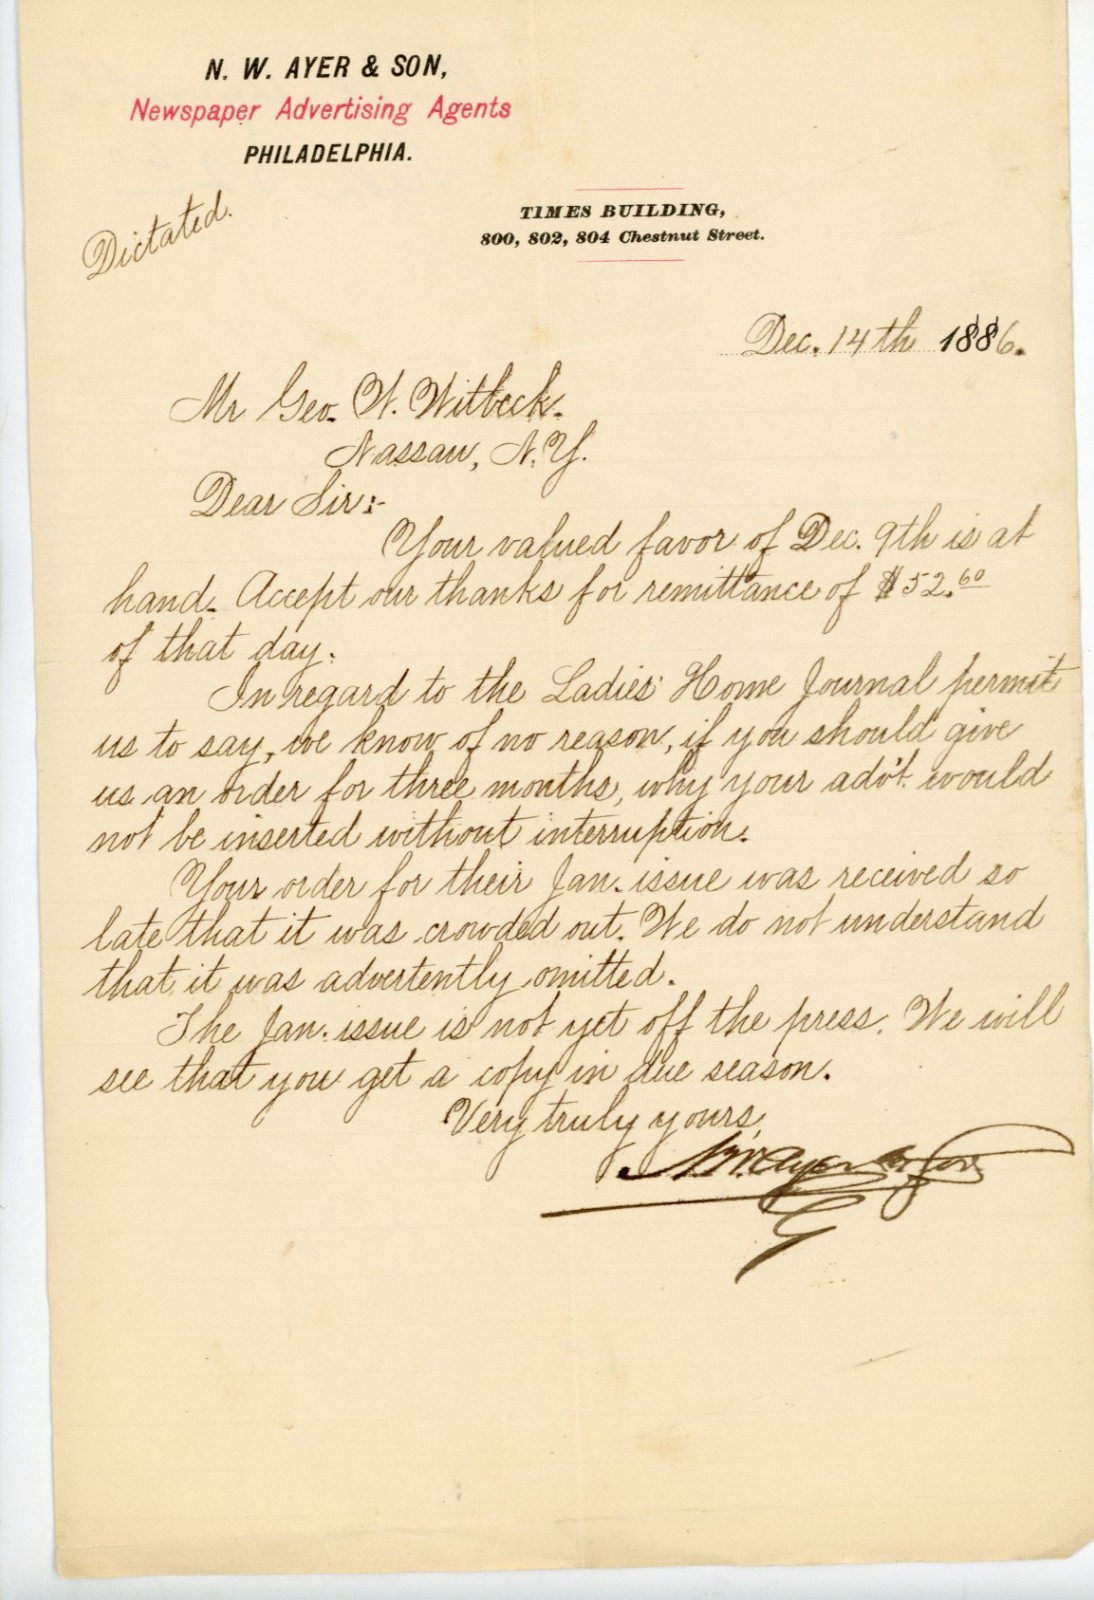 N. W. AYER & SON,
Newspaper Advertising Agents
PHILADELPHIA.
TIMES BUILDING,
800, 802, 804 Chestnut Street.
Dictated.
Dec. 14th 1886.
Mr Geo. W. Witbeck.
Nassau, N.Y.
Dear Sir:-
Your valued favor of Dec. 9th is at
hand. Accept our thanks for remittance of $52.60
of that day.
In regard to the Ladies' Home Journal permit
us to say, we know of no reason, if you should give
us an order for three months, why your adv't. would
not be inserted without interruption.
Your order for their Jan. issue was received so
late that it was crowded out. We do not understand
that it was advertently omitted.
The Jan. issue is not yet off the press. We will
see that you get a copy in due season.
Very truly yours,
N.W. Ayer & Son
G